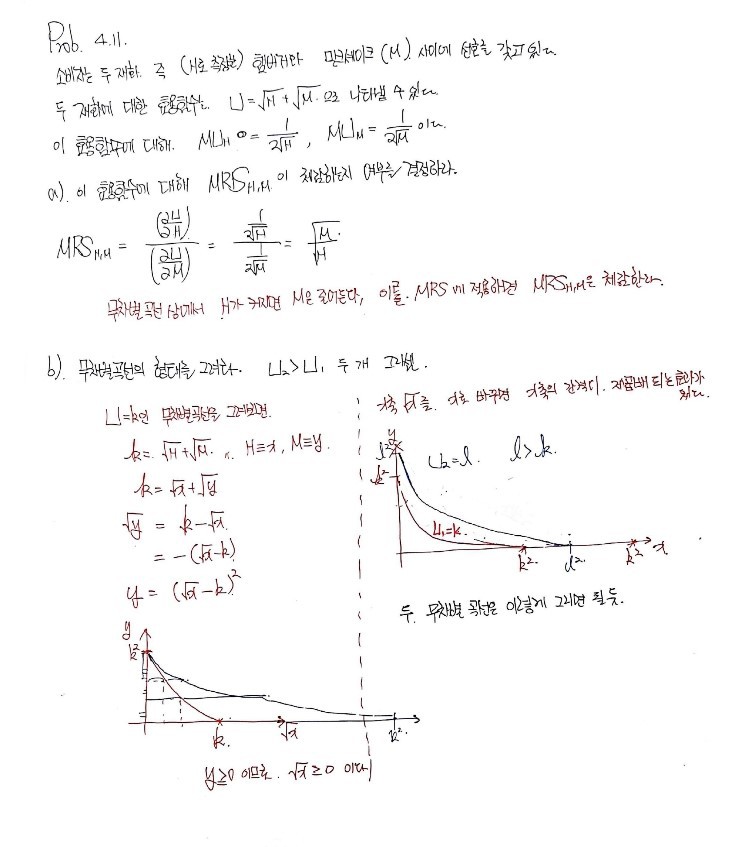 Prob. 4.11.
소비자는 두 재화. 즉 (H로 측정한) 햄버거와 밀크쉐이크 (M) 사이에 선호를 갖고 있다.
두 재화에 대한 효용함수는. U=√H+√M. 으로 나타낼 수 있다.
이 효용함수에 대해. MU_H = 1/2√H , MU_M = 1/2√M 이다.
a). 이 효용함수에 대해 MRS_H,M 이 체감하는지 여부를 결정하라.
MRS_H,M = (∂U/∂H)/(∂U/∂M) = (1/2√H)/(1/2√M) = √M/√H
무차별곡선 상에서 H가 커지면 M은 줄어든다, 이를. MRS에 적용하면 MRS_H,M은 체감한다.
b). 무차별곡선의 형태를 그려라. U₂>U₁ 두 개 그리셈.
U=k인 무차별곡선을 그려보면.
k=√H+√M. H≡x, M≡y.
k=√x+√y
√y = k-√x
= -(√x-k)
y = (√x-k)²
y
k²
k.
√x
k²
y≥0 이므로. √x≥0 이다
x축 √x를. x로 바꾸면 x축의 간격이. 제곱배 되는 효과가 있다.
y
l²
k²
U₂=l. l>k.
U₁=k.
k².
l².
k²
x
두. 무차별 곡선은 이렇게 그리면 될 듯.